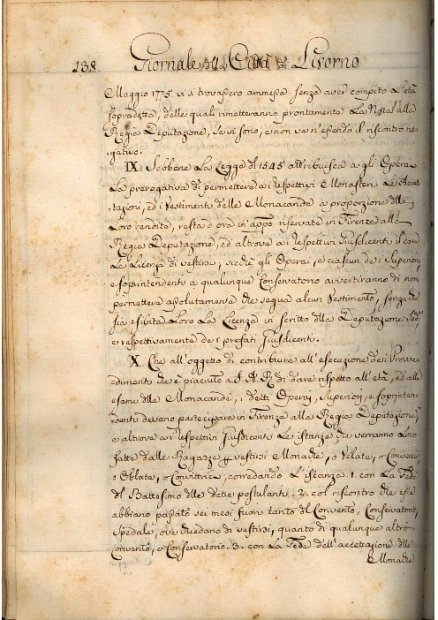 138. Giornale della Città di Livorno
Maggio 1775 vi si trovassero ammesse senza aver compito L'età
sopradetta, delle quali rimetteranno prontamente La Nota alla
Regia Deputazione, se vi sono, e non va n'essendo il riscontro ne-
gativo.
IX. Sebbene La Legge del 1545 attribuisca a gli Operai
La prerogativa di permettere ai respettivi Monasteri Le Accet-
tazioni, ed i Vestimenti delle Monacande a proporzione delle
Loro rendite, resta ora in appo riservata in Firenze alla
Regia Deputazione, ed altrove ai respettivi Giusdicenti il dare
La Licenza di vestirsi, sicchè gli Operai, e ciascun dei Superiori,
e soprintendenti a qualunque Conservatorio avvertiranno di non
permettere assolutamente che segua alcun Vestimento, senza che
sia esibita Loro La Licenza in scritto della Deputazione
o respettivamente dei prefati Giusdicenti.
X. Che all'oggetto di contribuire all'esecuzione dei Provve-
dimenti che è piaciuto a S. A. R. di dare rispetto all'età, ed all'
esame delle Monacande, i detti Operai, Superiori, e soprinten-
denti devano partecipare in Firenze alla Regia Deputazione,
o altrove ai respettivi Giusdicenti Le istanze che verranno Loro
fatte dalle Ragazze per vestirsi Monache, o Velate, o Converse
o Oblate, o Convittrici, corredando L'istanza. 1. con La Fede
del Battesimo delle dette postulanti. 2. col riscontro che esse
abbiano passato sei mesi fuori tanto del Convento, Conservatorio,
Spedale, ove chiedano di vestirsi, quanto di qualunque altro
Convento, o Conservatorio. 3. con La Fede dell'accettazione delle
Monache